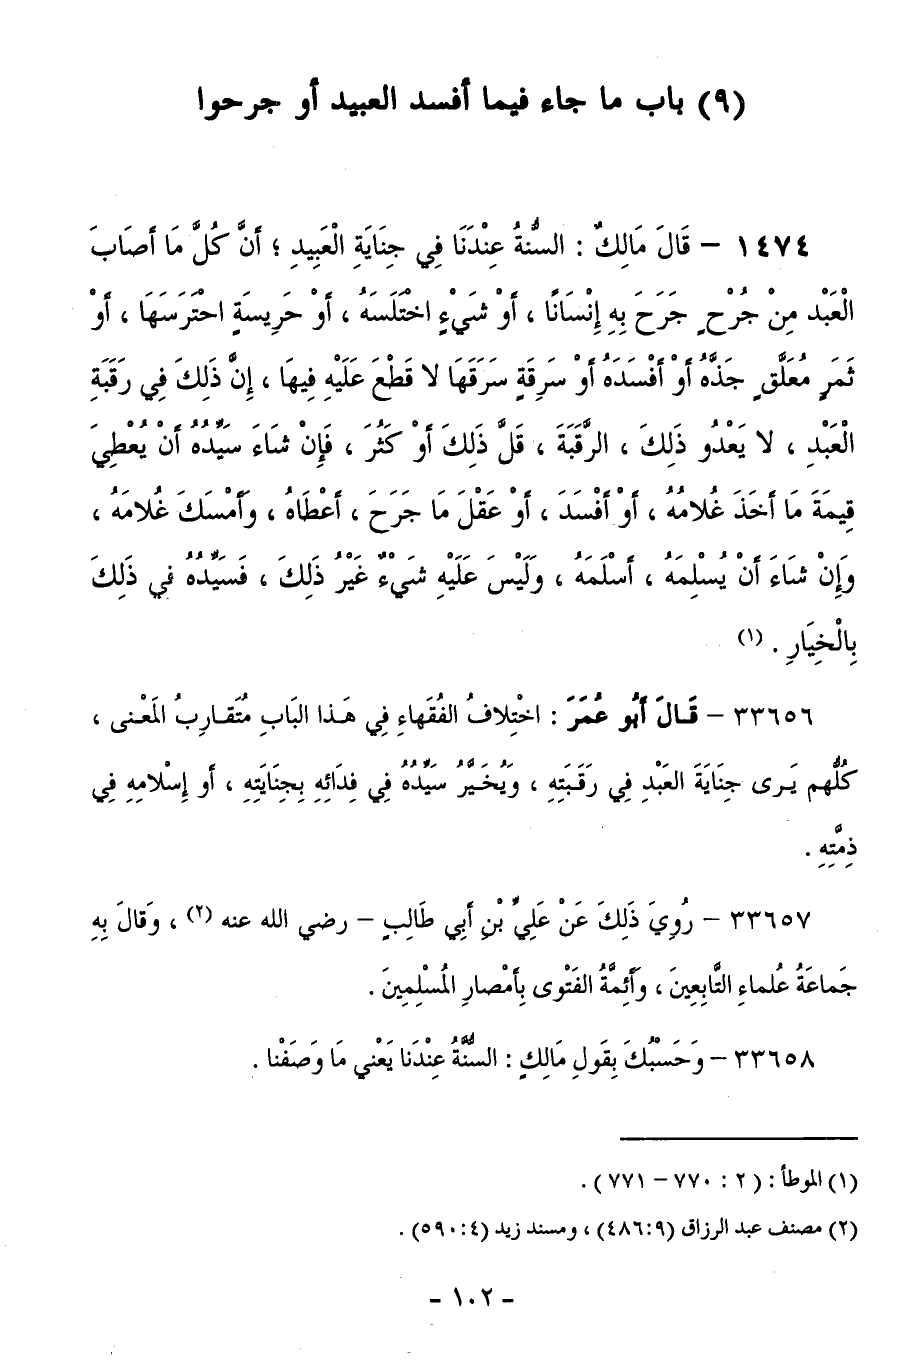 (٩) باب ما جاء فيما أفسد العبيد أو جرحوا
١٤٧٤ – قَالَ مَالِكٌ : السُّنَّةُ عِنْدَنَا فِي جِنَايَةِ الْعَبِيدِ ؛ أَنَّ كُلَّ مَا أَصَابَ
الْعَبْد مِنْ جُرْحٍ جَرَحَ بِهِ إِنْسَانًا ، أَوْ شَيْءٍ اخْتَلَسَهُ ، أَوْ حَرِيسَةٍ احْتَرَسَهَا ، أَوْ
ثَمَرٍ مُعَلَّقٍ جَذَّهُ أَوْ أَفْسَدَهُ أَوْ سَرِقَةٍ سَرَقَهَا لا قَطْعَ عَلَيْهِ فِيهَا ، إِنَّ ذَلِكَ فِي رَقَبَةِ
الْعَبْدِ ، لا يَعْدُو ذَلِكَ ، الرَّقَبَةَ ، قَلَّ ذَلِكَ أَوْ كَثُرَ ، فَإِنْ شَاءَ سَيِّدُهُ أَنْ يُعْطِيَ
قِيمَةَ مَا أَخَذَ غُلامُهُ ، أَوْ أَفْسَدَ ، أَوْ عَقْلَ مَا جَرَحَ ، أَعْطَاهُ ، وَأَمْسَكَ غُلامَهُ ،
وَإِنْ شَاءَ أَنْ يُسْلِمَهُ ، أَسْلَمَهُ ، وَلَيْسَ عَلَيْهِ شَيْءٌ غَيْرُ ذَلِكَ ، فَسَيِّدُهُ فِي ذَلِكَ
بِالْخِيَارِ . (١)
٣٣٦٥٦ – قَالَ أَبُو عُمَرَ : اخْتِلافُ الفُقَهاءِ فِي هَذا البَابِ مُتَقارِبُ المَعْنى ،
كُلُّهم يَرى جِنَايَةَ العَبْدِ فِي رَقَبَتِهِ ، وَيُخَيَّرُ سَيِّدُهُ فِي فِدَائِهِ بِجِنَايَتِهِ ، أو إِسْلامِهِ فِي
ذِمَّتِهِ .
٣٣٦٥٧ – رُوِيَ ذَلِكَ عَنْ عَلِيِّ بْنِ أَبِي طَالِبٍ – رضي الله عنه (٢) ، وَقالَ بِهِ
جَماعَةُ عُلماءِ التَّابِعِينَ ، وَأَئِمَّةُ الفَتْوى بِأَمْصارِ المُسْلِمِينَ .
٣٣٦٥٨ – وَحَسْبُكَ بِقَولِ مَالِكٍ : السُّنَّةُ عِنْدَنا يَعْني مَا وَصَفْنا .
(١) الموطأ : (٢ : ٧٧٠ – ٧٧١) .
(٢) مصنف عبد الرزاق (٩:٤٨٦) ، ومسند زيد (٤:٥٩٠) .
- ١٠٢ -